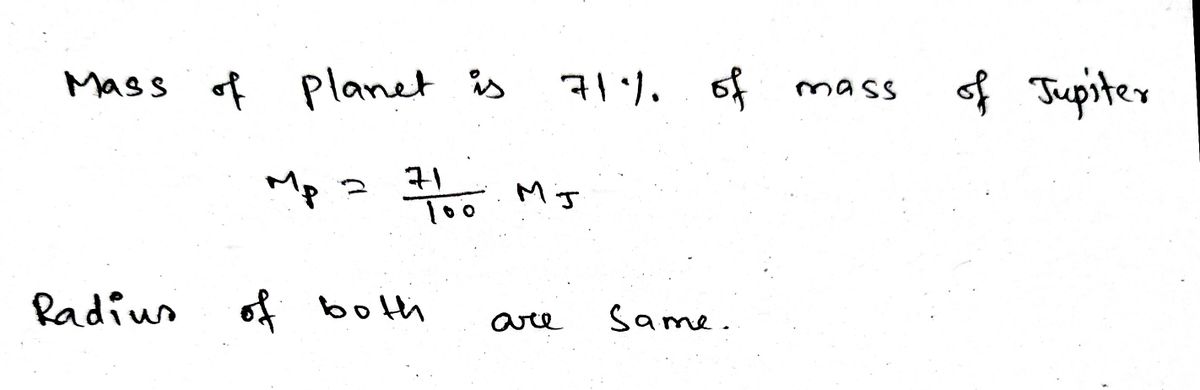 Mass of planet is 71%. of mass of Jupiter
Mp = 71/100 MJ
Radius of both are same.